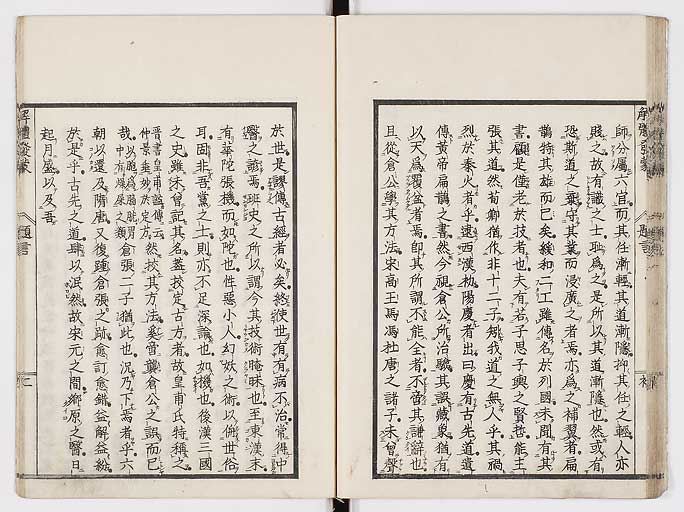 師分屬六官而其任漸輕其道漸隱抑其任之輕人亦
賤之故有識之士耻爲之是所以其道漸隱也然或有
恐斯道之棄守其業而浸廣之者焉亦爲之補翼者扁
鵲特其雄而已矣緩和二工雖傳名於列國未聞有其
書顧是僅老於技者也夫有若子思子輿之賢哲能主
張其道然荀卿猶作非十二子矧我道之無人乎其禍
烈於秦火者乎逮西漢初陽慶者出曰慶有古先道遺
傳黃帝扁鵲之書然今視倉公所治驗其誤藏象猶有
以天爲覆盆者焉卽其所謂不能全者不啻其謙辭也
且從倉公學其方法宋高王馮杜唐之諸子未曾聲
於世是謬傳古經者必矣終使世有有病不治常得中
醫之諺焉班史之所以謂今其技術晻昧也至東漢末
有華陀張機而如陀也性惡小人幻妖之術以倂世俗
耳固非吾黨之士則亦不足深論也如機也後漢三國
之史雖未曾記其名蓋挍定古方者故皇甫氏特稱之
晉書皇甫謐傳云
仲景垂妙於定方
然挍其方法奚啻襲倉公之誤而已
哉
以脆爲膀胱胃
中有燥屎之類
倉張二子猶此也況乃下焉者乎六
朝以還及隋唐又後踵倉張之跡愈訂愈錯益解益紛
於是乎古先之道肆以泯然故宋元之間鄉原之醫日
起月盛以及吾
解體發蒙
題言
二